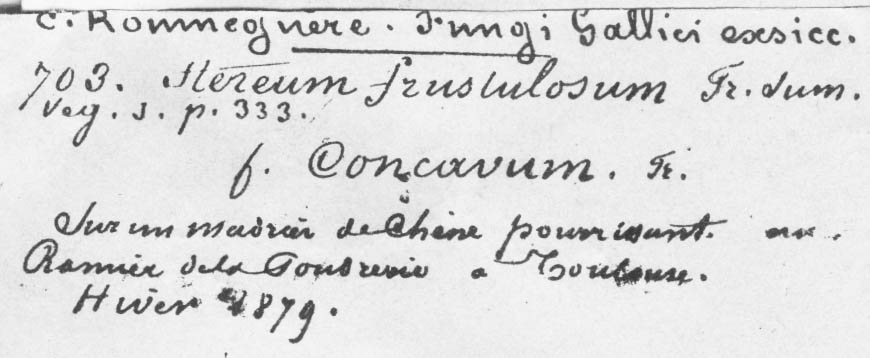 C. Roumeguère. Fungi Gallici exsicc.
703. Stereum frustulosum Fr. Sum.
Veg. S. p. 333.
f. Concavum. Fr.
Sur un madrier de Chêne pourrissant. au.
Ramier de la Poudrerie a Toulouse.
Hiver 1879.